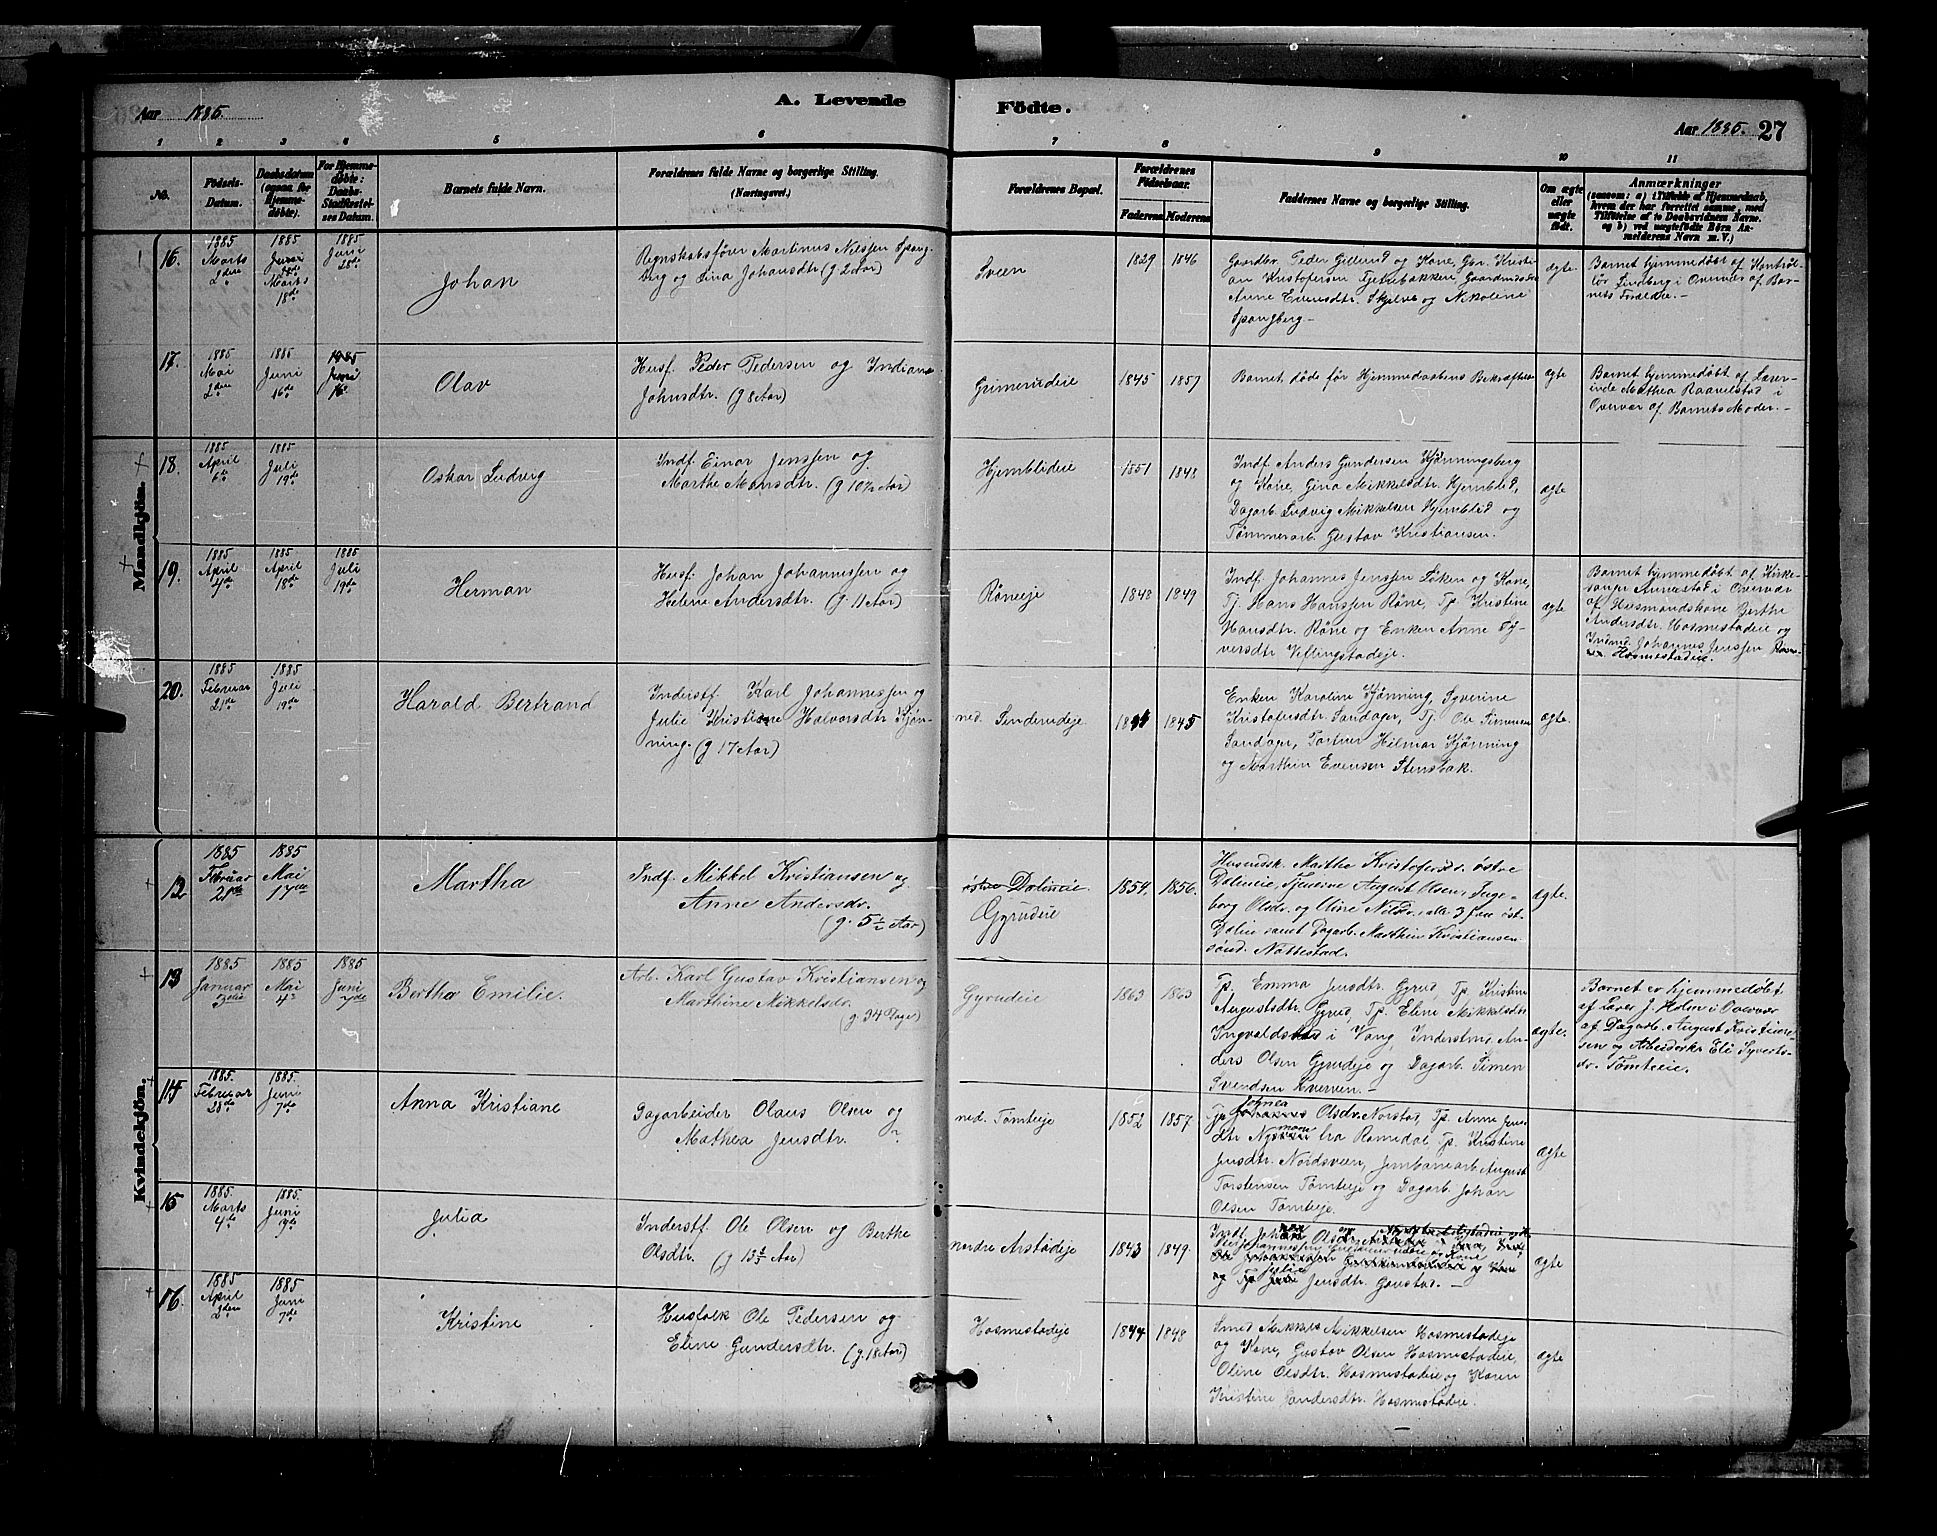 Aar 1885.
A. Levende
Födte.
Aar 1885. 27
1 2 3 4 5 6 7 8 9 10 11
No.
Födsels-Datum.
Daabsdatum (ogsaa for Hjemmedöbte).
For Hjemmedöbte: Daabs-Stadfæstelses Datum.
Barnets fulde Navn.
Forældrenes fulde Navne og borgerlige Stilling. (Næringsvei.)
Forældrenes Bopæl.
Forældrenes Födselsaar.
Faderens Moderens
Faddernes Navne og borgerlige Stilling.
Om ægte eller uægte födt.
Anmærkninger
(saasom: a) i Tilfælde af Hjemmedaab, hvem der har forrettet samme, med Tilföielse af to Daabsvidners Navne. og b) ved uægtefödte Börn Anmelderens Navn m. V.)
Mandkjön.
16.
1885 Marts 2den
1885 Marts 18de
1885 Juni 28de
Johan
Regnskabsfører Martinus Nilssen Spang-
berg og Lina Johansdtr (g 2 Aar)
Sveen
1829 1846
Gaardbr. Peder Gillund og Kone, Gbr. Kristi-
an Kristofersen Fjetrebakken Gaardmandsd
Anne Evensdtr. Skjelve og Nikoline
Spangberg –
ægte.
Barnet hjemmedøbt af Kontrol-
lør Lindberg i Overvær af Bar-
nets Forældre. –
17.
1885 Mai 2den
1885 Juni 16de
1885 Juni 16de
Olav
Husf. Peder Pedersen og Indiana
Johnsdtr. (g 8 Aar)
Grimerudeie
1845 1857
Barnet døde før Hjemmedaabens Bekræftelse
ægte
Barnet hjemmedøbt af Lærer-
inde Mathea Raavelstad i
Overvær af Barnets Moder. –
18.
1885 April 6te
1885 Juli 19de
Oskar Ludvig
Indf. Einar Jenssen og
Marthe Mansdtr. (g 10½ Aar)
Hjemblideie
1851 1848
Indf. Anders Gundersen Kjønningsberg
og Kone, Gina Mikkelsdtr. Hjemblid,
Dagarb. Ludvig Mikkelsen Hjemblid og
Tømmerarb. Gustav Kristiansen.
ægte
19.
1885 April 4de
1885 April 18de
1885 Juli 19de
Herman
Husf. Johan Johannessen og
Helene Andersdtr. (g. 11 Aar)
Røneeje
1848 1849
Indf. Johannes Jenssen Løken og Kone,
Tj. Hans Hanssen Røne, Tp. Kristine
Hansdtr. Røne og Enken Anne Sy-
versdtr Viflingstadeje.
ægte
Barnet hjemmedøbt af Kirke-
sanger Arnestad i Overvær
af Husmandskone Berthe
Andersdtr. Hosmestadeie og
Indf. Johannes Jenssen Røne-
Hosmestadeie.
20.
1885 Februar 21de
1885 Juli 19de
Harald Bertrand
Inderstf. Karl Johannessen og
Julie Kristiane Halvorsdtr Kjøn-
ning. (g 17 Aar)
ned. Sinderudeje
1845
Enken Karoline Kjønning, Syverine
Kristofersdtr. Sandager, Tj. Ole Simensen
Sandager, Portner Hilmar Kjønning
og Marthin Evensen Stensbak.
ægte.
Kvindekjön.
12
1885 Februar 28de
1885 Mai 17de
Martha
Indf. Mikkel Kristiansen og
Anne Andersdr.
(g. 5½ Aar)
østre Dalineie.
Gjyrudeie
1854. 1856.
Husmdsk. Marthe Kristofersdr. østre
Dalineie, Tjenerne August Olsen, Inge-
borg Olsdr. og Oline Nilsdr. alle 3 fra øst.
Dalin samt Dagarb. Marthin Kristiansen
sønd. Nøttestad.
ægte.
13
1885 Januar 3die
1885 Mai 4de
1885 Juni 7de
Berthe Emilie.
Arb. Karl Gustav Kristiansen og
Marthine Mikkelsdr.
(g. 34 Dage)
Gyrudeie
1863 1863
Tp. Emma Jensdtr. Gjrud, Tp. Kristine
Augustsdtr. Gjrud, Tp. Eline Mikkelsdtr
Ingvaldstad i Vang, Inderstm. An-
ders Olsen Gjrudeje og Dagarb. Simen
Svendsen Kverven. –
ægte.
Barnet er hjemmedøbt
af Lærer J. Holm i Overvær
af Dagarb. August Kristian-
sen og Arbeiderske Eli Syverts-
dr. Tømteeie.
14
1885. Februar 28de
1885. Juni 7de
Anna Kristiane
Dagarbeider Olaus Olsen og
Mathea Jensdtr.
ned. Tømteeje
1852 1857.
Tp. Johannes Olsdr. Norstad, Tp. Anne Jens-
dtr fra Romedal Tp. Kristine
Jensdtr. Nordsveen, Jernbanearb. August
Torstensen Tømteeje og Dagarb. Johan
Olsen Tømteeje.
ægte
15
1885. Marts 4de
1885. Juni
Julia
Inderstf. Ole Olsen og Berthe
Olsdtr. (g 13 Aar)
nedre Arstadeje
1843 1849.
og Tp. Julie Jensdtr. Gaustad. –
ægte
16.
1885 April 2den
1885 Juni 7de
Kristine
Husfolk Ole Pedersen og
Eline Gundersdtr. (g. 18 Aar)
Hosmestadeje
1844 1848
Smed Mikkel Mikkelsen Hosmestadeje
og Kone, Gustav Olsen Hosmestadeie,
Oline Olsdtr. Hosmestadeie og Karen
Kristine Gundersdtr. Hosmestadeie.
ægte